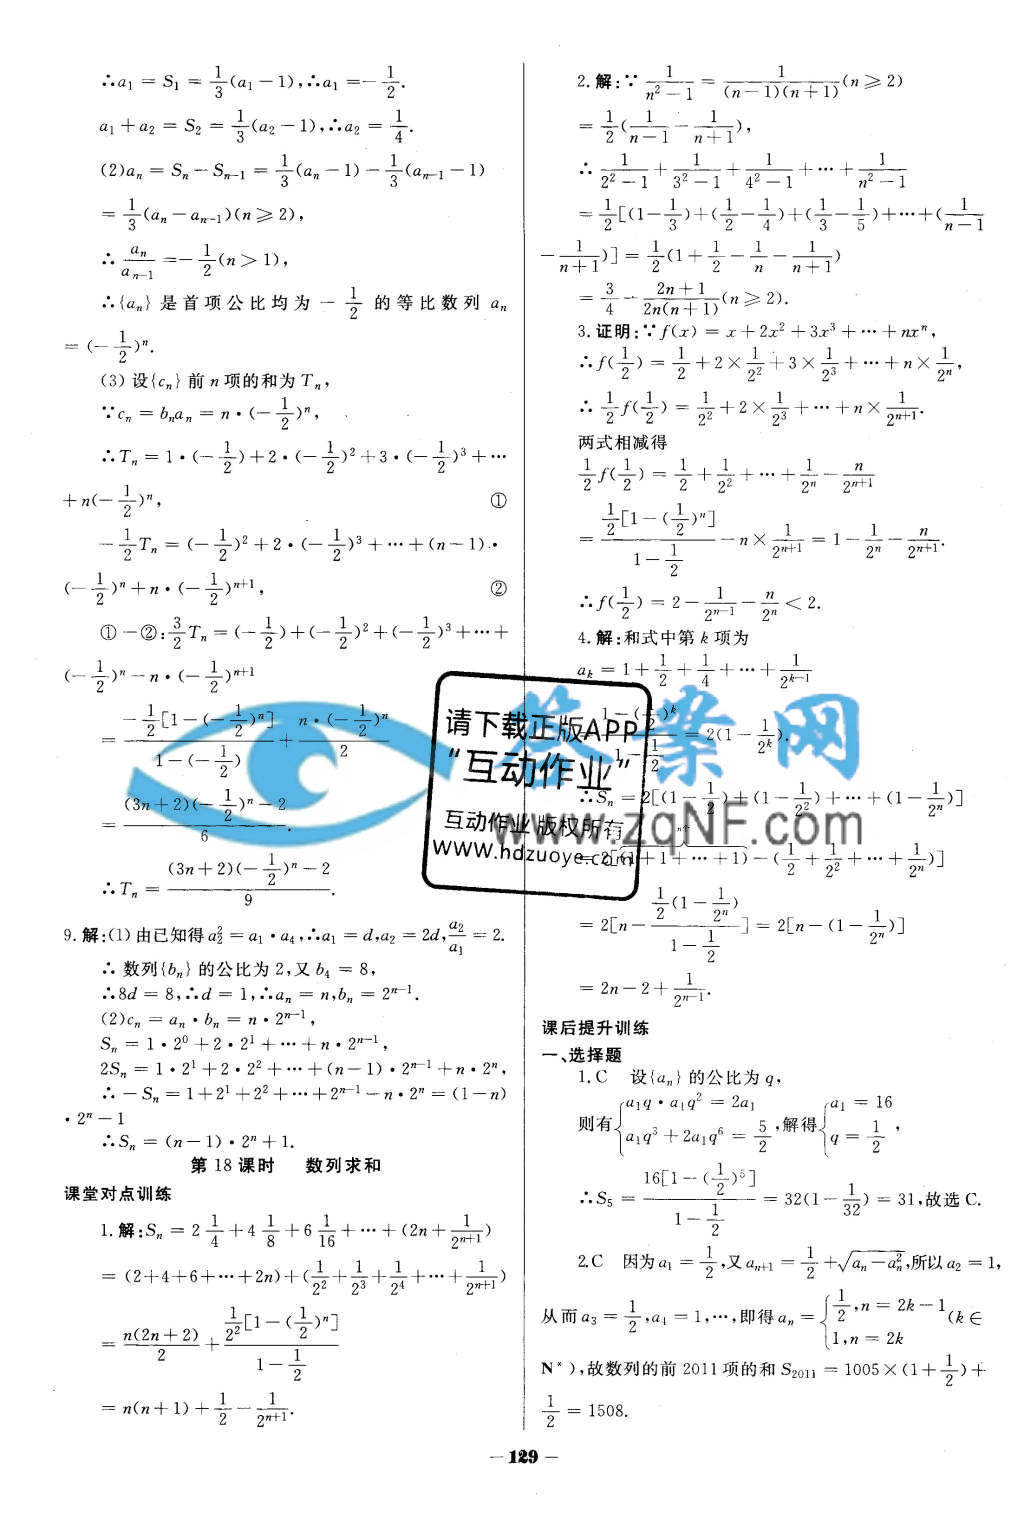 ∴a₁ = S₁ = 1/3(a₁−1),∴a₁ =−1/2.
a₁+a₂ = S₂ = 1/3(a₂−1),∴a₂ = 1/4.
(2)aₙ = Sₙ−Sₙ₋₁ = 1/3(aₙ−1)−1/3(aₙ₋₁−1)
= 1/3(aₙ−aₙ₋₁)(n≥2),
∴ aₙ/aₙ₋₁ =−1/2(n>1),
∴{aₙ} 是首项公比均为 −1/2 的等比数列 aₙ
= (−1/2)ⁿ.
(3) 设{cₙ}前 n 项的和为 Tₙ,
∵cₙ = bₙaₙ = n·(−1/2)ⁿ,
∴Tₙ = 1·(−1/2)+2·(−1/2)²+3·(−1/2)³+⋯
+n(−1/2)ⁿ, ①
−1/2Tₙ = (−1/2)²+2·(−1/2)³+⋯+(n−1)·
(−1/2)ⁿ+n·(−1/2)ⁿ⁺¹, ②
①−②:3/2Tₙ = (−1/2)+(−1/2)²+(−1/2)³+⋯+
(−1/2)ⁿ−n·(−1/2)ⁿ⁺¹
= −1/2[1−(−1/2)ⁿ]/(1−(−1/2)) + n·(−1/2)ⁿ/2
= ((3n+2)(−1/2)ⁿ−2)/6.
∴Tₙ = ((3n+2)(−1/2)ⁿ−2)/9.
9.解:(1)由已知得a₂² = a₁·a₄,∴a₁ = d,a₂ = 2d,a₂/a₁ = 2.
∴ 数列{bₙ}的公比为 2,又 b₄ = 8,
∴8d = 8,∴d = 1,∴aₙ = n,bₙ = 2ⁿ⁻¹.
(2)cₙ = aₙ·bₙ = n·2ⁿ⁻¹,
Sₙ = 1·2⁰+2·2¹+⋯+n·2ⁿ⁻¹,
2Sₙ = 1·2¹+2·2²+⋯+(n−1)·2ⁿ⁻¹+n·2ⁿ,
∴−Sₙ = 1+2¹+2²+⋯+2ⁿ⁻¹−n·2ⁿ = (1−n)
·2ⁿ−1
∴Sₙ = (n−1)·2ⁿ+1.
第 18 课时 数列求和
课堂对点训练
1.解:Sₙ = 2 1/4+4 1/8+6 1/16+⋯+(2n+1/2ⁿ⁺¹)
= (2+4+6+⋯+2n)+(1/2²+1/2³+1/2⁴+⋯+1/2ⁿ⁺¹)
= n(2n+2)/2 + 1/2²[1−(1/2)ⁿ]/(1−1/2)
= n(n+1)+1/2−1/2ⁿ⁺¹.
2.解:∵ 1/(n²−1) = 1/((n−1)(n+1)) (n≥2)
= 1/2(1/(n−1)−1/(n+1)),
∴ 1/(2²−1)+1/(3²−1)+1/(4²−1)+⋯+1/(n²−1)
= 1/2[(1−1/3)+(1/2−1/4)+(1/3−1/5)+⋯+(1/(n−1)
−1/(n+1))] = 1/2(1+1/2−1/n−1/(n+1))
= 3/4−(2n+1)/(2n(n+1))(n≥2).
3.证明:∵f(x) = x+2x²+3x³+⋯+nxⁿ,
∴f(1/2) = 1/2+2×1/2²+3×1/2³+⋯+n×1/2ⁿ,
∴ 1/2f(1/2) = 1/2²+2×1/2³+⋯+n×1/2ⁿ⁺¹.
两式相减得
1/2f(1/2) = 1/2+1/2²+⋯+1/2ⁿ−n/2ⁿ⁺¹
= 1/2[1−(1/2)ⁿ]/(1−1/2) −n×1/2ⁿ⁺¹ = 1−1/2ⁿ−n/2ⁿ⁺¹.
∴f(1/2) = 2−1/2ⁿ⁻¹−n/2ⁿ<2.
4.解:和式中第 k 项为
aₖ = 1+1/2+1/4+⋯+1/2ᵏ⁻¹
= (1−(1/2)ᵏ)/(1−1/2) = 2(1−1/2ᵏ).
∴Sₙ = 2[(1−1/2)+(1−1/2²)+⋯+(1−1/2ⁿ)]
= 2[(1+1+⋯+1)−(1/2+1/2²+⋯+1/2ⁿ)]
= 2[n−1/2(1−1/2ⁿ)/(1−1/2)] = 2[n−(1−1/2ⁿ)]
= 2n−2+1/2ⁿ⁻¹.
课后提升训练
一、选择题
1.C 设{aₙ}的公比为 q,
则有{a₁q·a₁q² = 2a₁ a₁q³+2a₁q⁶ = 5/2,解得{a₁ = 16 q = 1/2,
∴S₅ = 16[1−(1/2)⁵]/(1−1/2) = 32(1−1/32) = 31,故选 C.
2.C 因为a₁ = 1/2,又aₙ₊₁ = 1/2+√(aₙ−aₙ²),所以 a₂ = 1,
从而 a₃ = 1/2,a₄ = 1,⋯,即得 aₙ = {1/2,n = 2k−1 1,n = 2k (k∈
N*),故数列的前 2011 项的和 S₂₀₁₁ = 1005×(1+1/2)+
1/2 = 1508.
— 129 —
答案网
www.zqNF.com
请下载正版APP
“互动作业”
互动作业 版权所有
www.hdzuoye.com